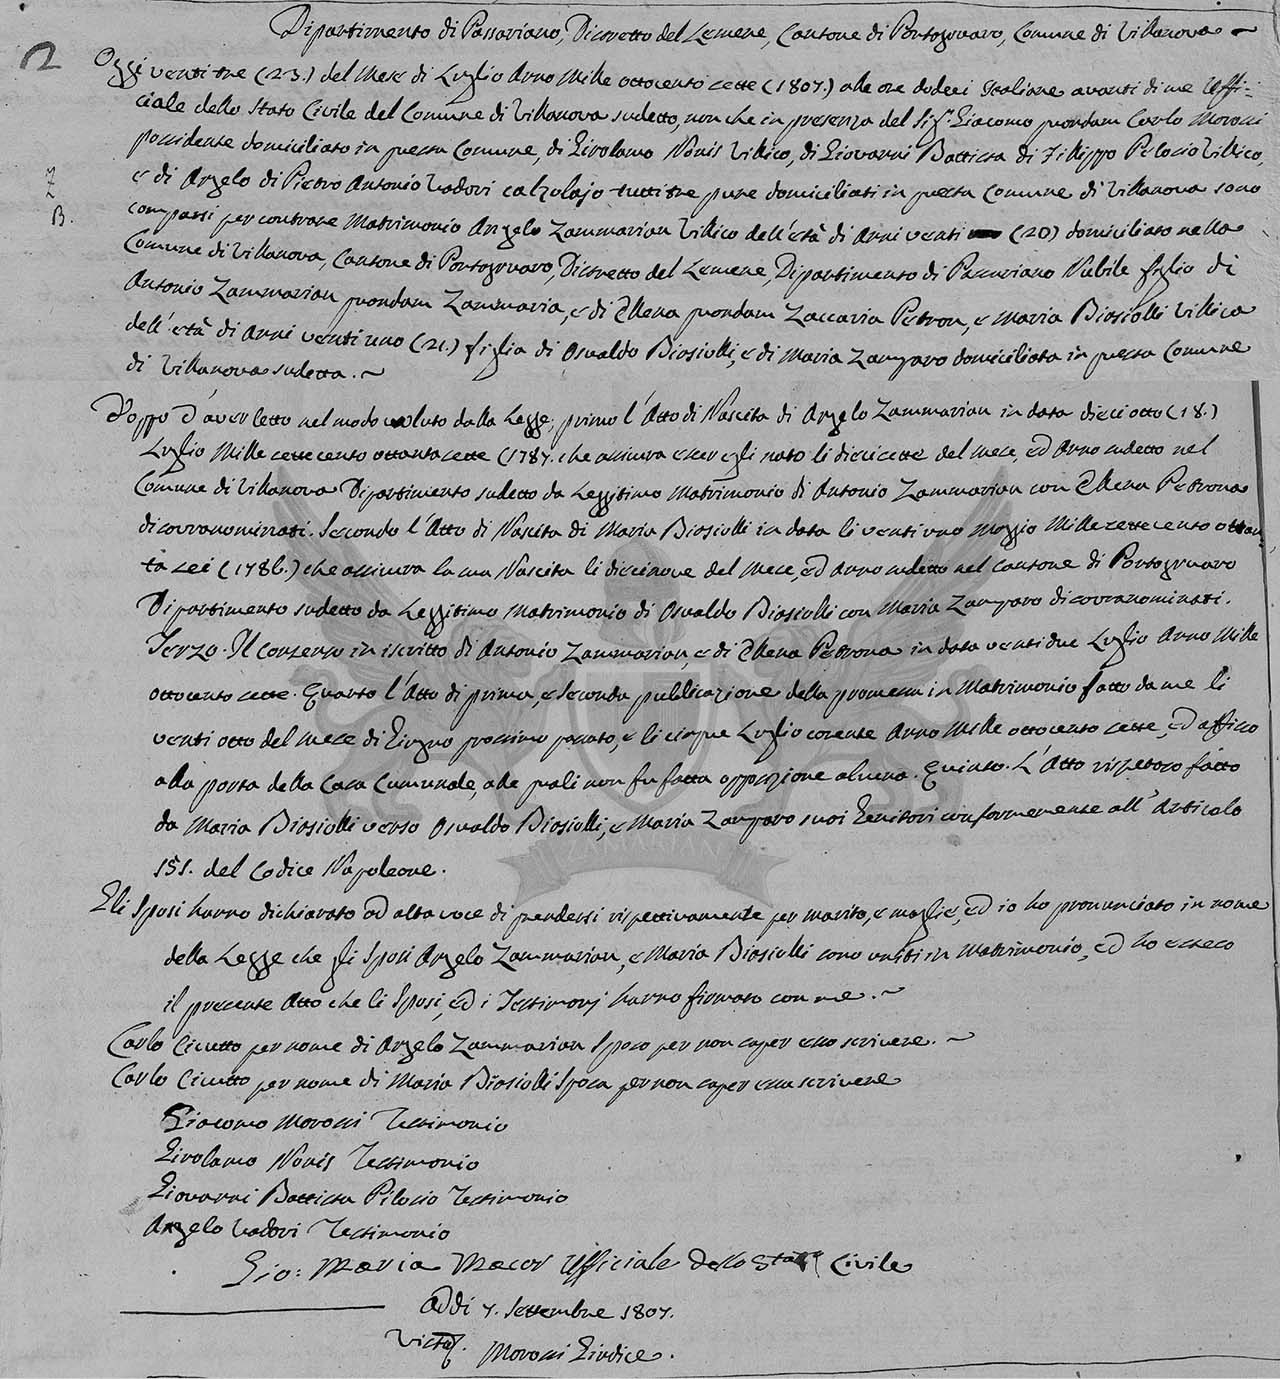 Dipartimento di Passariano, Distretto del Lemene, Cantone di Portogruaro, Comune di Villanova
2
Oggi venti tre (23.) del Mese di Luglio Anno Mille ottocento sette (1807.) alle ore dodeci Italiane avanti di me Uffi-
ciale dello Stato Civile del Comune di Villanova sudetto, non che in presenza del Sig.r Giacomo quondam Carlo Morossi
possidente domiciliato in questa Comune, di Girolamo Nonis Villico, di Giovanni Battista di Filippo Pilosio Villico,
e di Angelo di Pietro Antonio Vadori calzolajo tutti tre pure domiciliati in questa Comune di Villanova sono
B.
comparsi per contrare Matrimonio Angelo Zammarian Villico dell'età di Anni venti (20) domiciliato nella
Comune di Villanova, Cantone di Portogruaro, Distretto del Lemene, Dipartimento di Passariano Nubile figlio di
Antonio Zammarian quondam Zammaria, e di Ellena quondam Zaccaria Petron, e Maria Biasiolli Villica
dell'età di Anni venti uno (21.) figlia di Osvaldo Biasiolli, e di Maria Zamparo domiciliata in questa Comune
di Villanova sudetta.
Doppo d'aver letto nel modo voluto dalla Legge, primo l'Atto di Nascita di Angelo Zammarian in data dieciotto (18.)
Luglio Mille settecento ottantasette (1787. che assicura esser egli nato li diecisette del mese, ed Anno sudetto nel
Comune di Villanova Dipartimento sudetto da Leggitimo Matrimonio di Antonio Zammarian con Ellena Petrona
disovranominati. Secondo l'Atto di Nascita di Maria Biasiolli in data li venti uno Maggio Mille settecento ottan-
ta sei (1786.) che assicura la sua Nascita li diecinove del mese, ed Anno sudetto nel cantone di Portogruaro
Dipartimento sudetto da Leggitimo Matrimonio di Osvaldo Biasiolli con Maria Zamparo disovranominati.
Terzo. Il consenso in iscritto di Antonio Zammarian, e di Ellena Petrona in data venti due Luglio Anno Mille
ottocento sette. Quarto l'Atto di prima, e seconda pubblicazione della promessa in Matrimonio fatto da me li
venti otto del mese di Giugno prossimo passato, e li cinque Luglio corente Anno Mille ottocento sette, ed affisso
alla porta della Casa Comunale, alle quali non fu fatta opposizione alcuna. Quinto. L'Atto rispetoso fatto
da Maria Biasiolli verso Osvaldo Biasiolli, e Maria Zamparo suoi Genitori conformemente all'Articolo
151. del Codice Napoleone.
ZAMARIAN
Gli Sposi hanno dichiarato ad alta voce di prendersi rispettivamente per marito, e moglie, ed io ho pronunciato in nome
della Legge che gli Sposi Angelo Zammarian, e Maria Biasiolli sono uniti in Matrimonio, ed ho esteso
il presente Atto che li Sposi, ed i Testimonj hanno firmato con me.
Carlo Ciutto per nome di Angelo Zammarian Sposo per non saper esso scrivere.
Carlo Ciutto per nome di Maria Biasiolli Sposa per non saper essa scrivere
Giacomo Morossi Testimonio
Girolamo Nonis Testimonio
Giovanni Battista Pilosio Testimonio
Angelo Vadori Testimonio
Gio: Maria Macor Ufficiale dello Stato Civile
Addi 7. Settembre 1807.
Morossi Giudice.